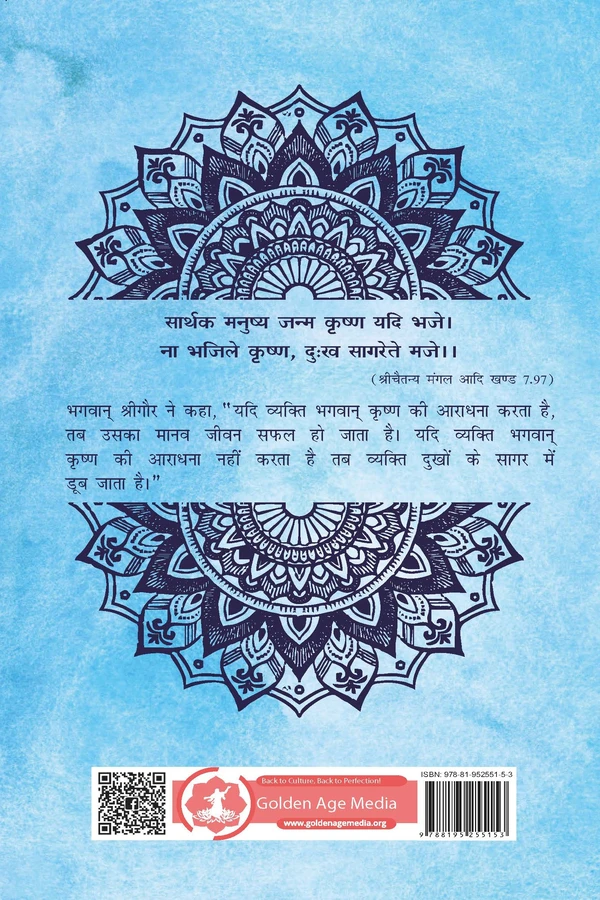 सार्थक मनुष्य जन्म कृष्ण यदि भजे।
ना भजिले कृष्ण, दुःख सागरेते मजे।।
(श्रीचैतन्य मंगल आदि खण्ड 7.97)
भगवान् श्रीगौर ने कहा, "यदि व्यक्ति भगवान् कृष्ण की आराधना करता है,
तब उसका मानव जीवन सफल हो जाता है। यदि व्यक्ति भगवान्
कृष्ण की आराधना नहीं करता है तब व्यक्ति दुखों के सागर में
डूब जाता है।"
Back to Culture, Back to Perfection!
Golden Age Media
www.goldenagemedia.org
ISBN: 978-81-952551-5-3
9 788195 255153